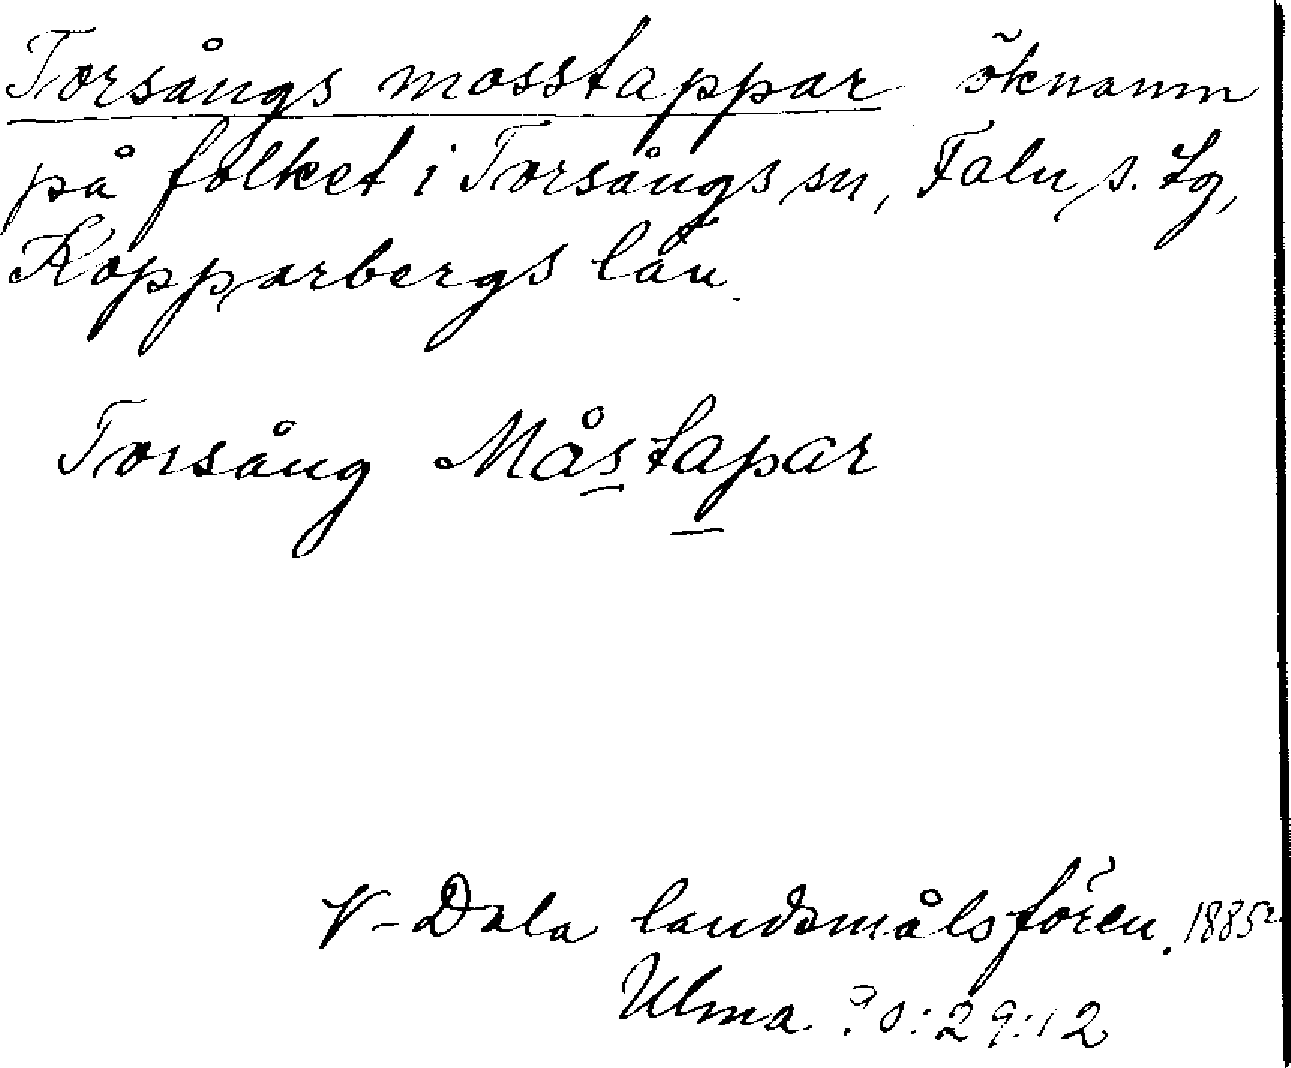 Torsångs mosstappar öknamn
på folket i Torsångs sn, Falu s. tg,
Kopparbergs län.
Torsång Måstapar
V-Dala landsmålsfören. 1885
Ulma 20:29:12